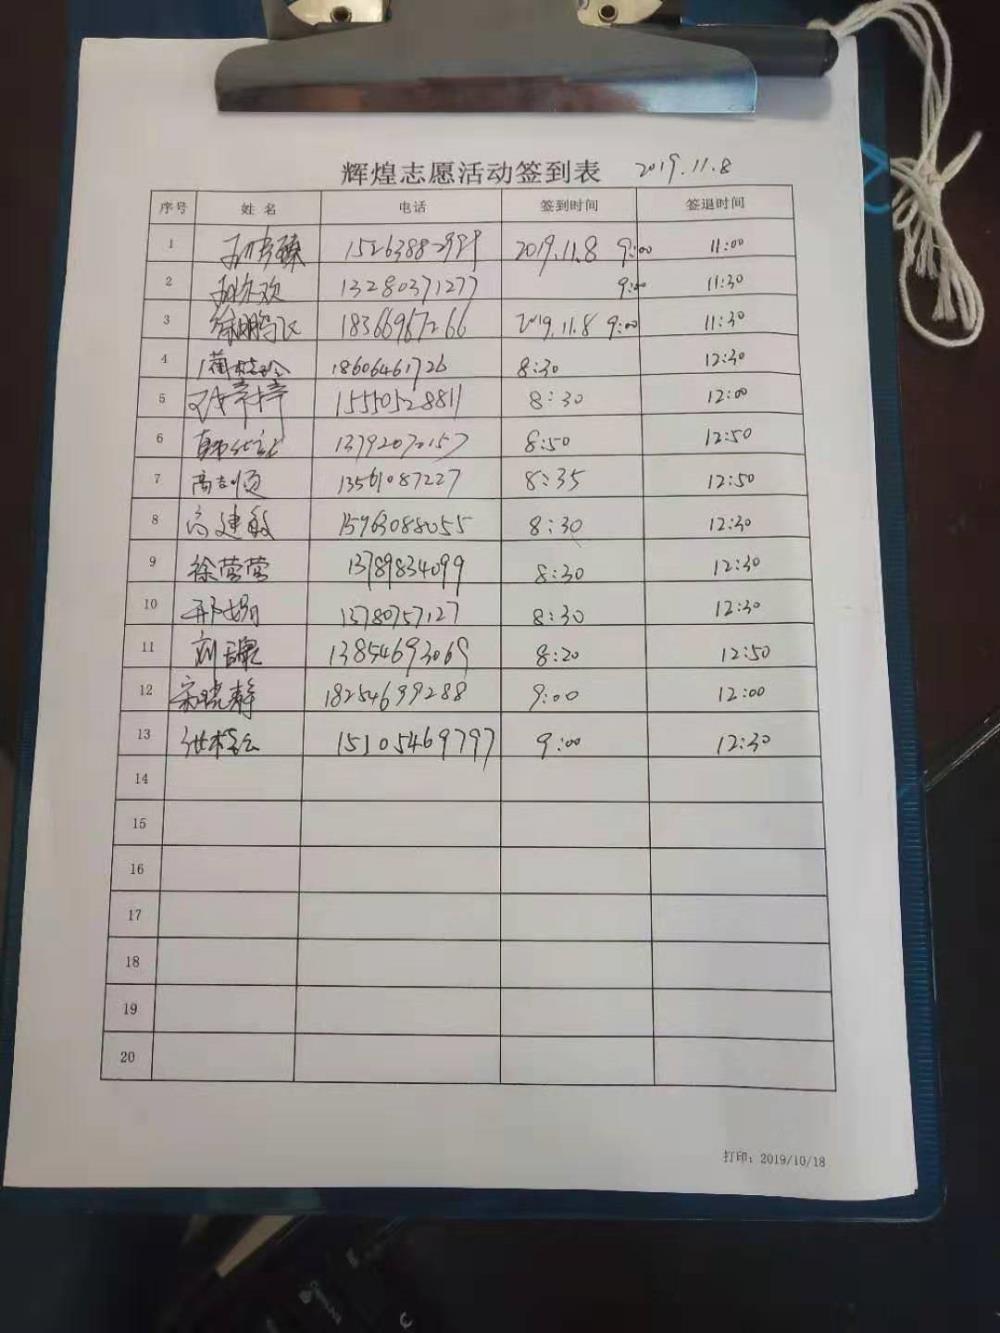 辉煌志愿活动签到表 2019.11.8
序号 姓名 电话 签到时间 签退时间
1 15263882999 2019.11.8 9:00 11:00
2 13280371277 9:00 11:30
3 徐鹏飞 18366967266 2019.11.8 9:00 11:30
4 18606461726 8:30 12:30
5 15550528811 8:30 12:00
6 13792072157 8:50 12:50
7 13561087227 8:35 12:50
8 高建敏 15963088055 8:30 12:30
9 徐莹莹 13789834099 8:30 12:30
10 邢娟 13780757127 8:30 12:30
11 13854693069 8:20 12:50
12 宋晓静 18254699288 9:00 12:00
13 15105469797 9:00 12:30
14
15
16
17
18
19
20
打印：2019/10/18